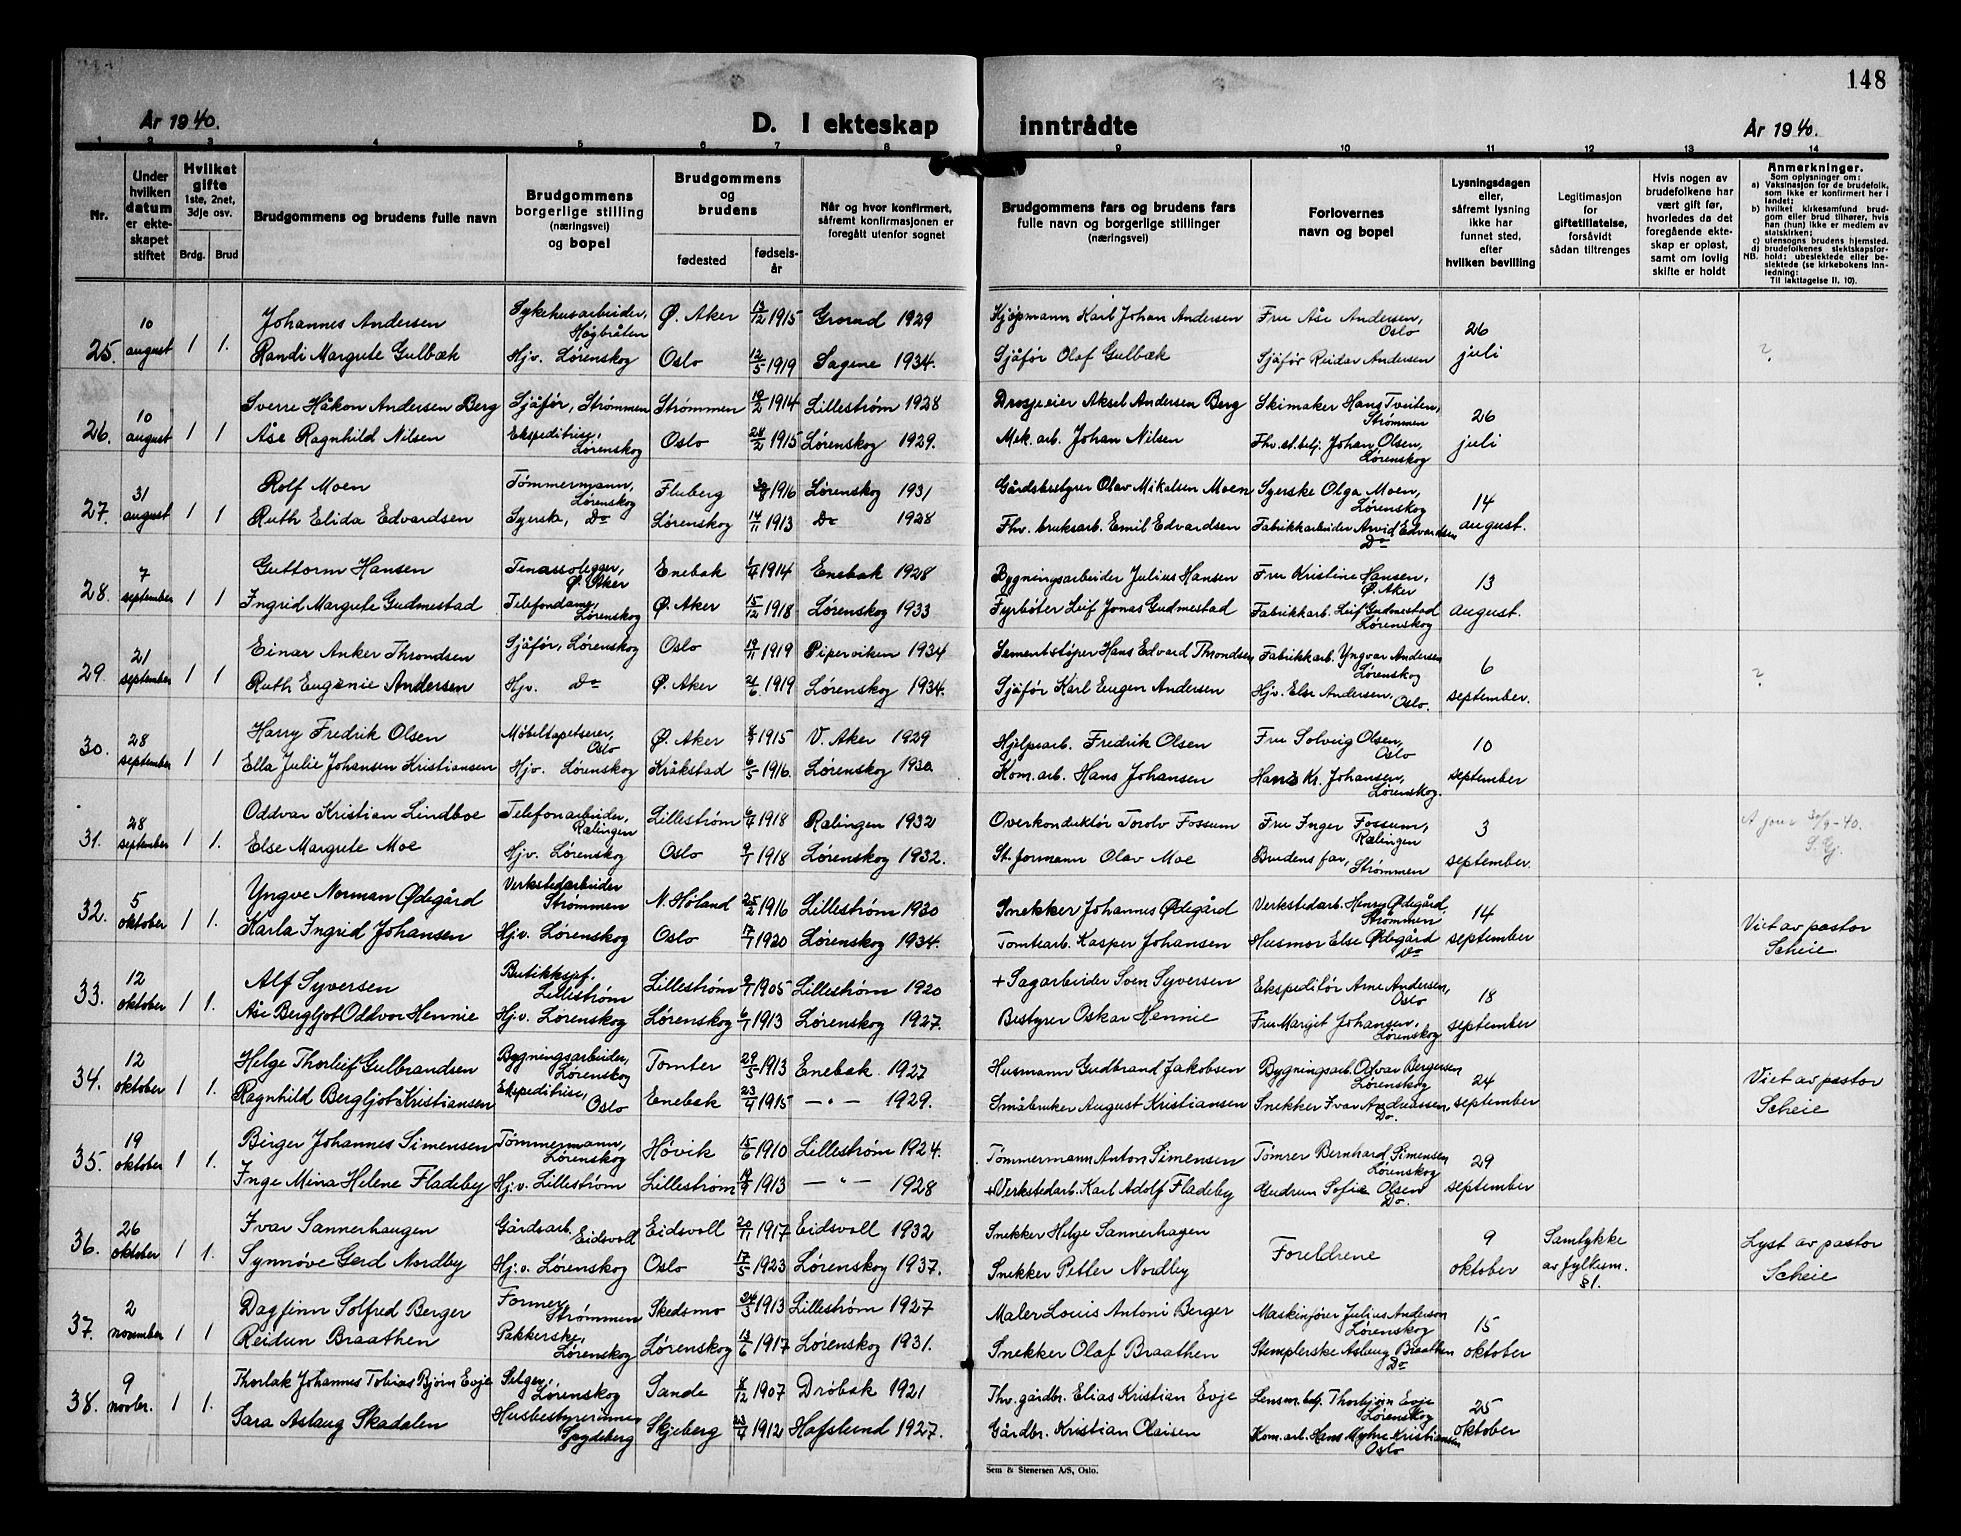 148
År 1940.
D. I ekteskap inntrådte
År 1940.
1 2 3 4 5 6 7 8 9 10 11 12 13 14
Nr.
Under hvilken datum er ekteskapet stiftet
Hvilket gifte 1ste, 2net, 3dje osv.
Brdg. Brud
Brudgommens og brudens fulle navn
Brudgommens borgerlige stilling (næringsvei) og bopel
Brudgommens og brudens
fødested
fødsels-år
Når og hvor konfirmert, såfremt konfirmasjonen er foregått utenfor sognet
Brudgommens fars og brudens fars fulle navn og borgerlige stillinger (næringsvei)
Forlovernes navn og bopel
Lysningsdagen eller, såfremt lysning ikke har funnet sted, efter hvilken bevilling
Legitimasjon for giftetillatelse, forsåvidt sådan tiltrenges
Hvis nogen av brudefolkene har vært gift før, hvorledes da det foregående ekteskap er opløst, samt om lovlig skifte er holdt
Anmerkninger.
Som oplysninger om:
a) Vaksinasjon for de brudefolk, som ikke er konfirmert her i landet;
b) hvilket kirkesamfund brudgom eller brud tilhører, hvis han (hun) ikke er medlem av statskirken;
c) utensogns brudens hjemsted.
d) brudefolkenes slektskapsforhold: ubeslektede eller beslektede (se kirkebokens Innledning:
NB. Til iakttagelse II, 10).
25. 10 august 1 1. Johannes Andersen Sykehusarbeider, Høgbråten Ø. Aker 13/12 1915 Grorud 1929 Kjøpmann Karl Johan Andersen Fru Åse Andersen, Oslo 26 juli
Randi Margrete Gulbæk Hjv. Lørenskog Oslo 12/5 1919 Sagene 1934. Sjåfør Olaf Gulbæk Sjåfør Reidar Andersen ?
26. 10 august 1 1 Sverre Håkon Andersen Berg Sjåfør, Strømmen Strømmen 19/2 1914 Lillestrøm 1928 Drosjeeier Aksel Andersen Berg Skimaker Hans Tveiten, Strømmen 26 juli
Åse Ragnhild Nilsen Ekspeditrise, Lørenskog Oslo 28/2 1915 Lørenskog 1929. Mek. arb. Johan Nilsen Johan Olsen, Lørenskog
27. 31 august 1 1 Rolf Moen Tømmermann, Lørenskog Fluberg 1916 Lørenskog 1931 Gårdsbestyrer Olav Mikalsen Moen Syerske Olga Moen, Lørenskog 14 august.
Ruth Elida Edvardsen Syerske, Do Lørenskog 14/11 1913 Do 1928 Fhv. bruksarb. Emil Edvardsen Fabrikkarbeider Arvid Edvardsen Do
28. 7 september 1 1 Guttorm Hansen Ø. Aker Enebak 1/4 1914 Enebak 1928 Bygningsarbeider Julius Hansen Fru Kristine Hansen, Ø. Aker 13 august.
Ingrid Margrete Gudmestad Telefondame, Lørenskog Ø. Aker 15/12 1918 Lørenskog 1933 Fyrbøter Leif Jonas Gudmestad Fabrikkarb. Leif Gudmestad Lørenskog
29. 21 september 1 1 Einar Anker Throndsen Sjåfør, Lørenskog Oslo 19/11 1919 Piperviken 1934 Sementstøper Hans Edvard Throndsen Fabrikkarb. Yngvar Andersen Lørenskog 6 september.
Ruth Eugenie Andersen Hjv. Do Ø. Aker 21/6 1919 Lørenskog 1934. Sjåfør Karl Eugen Andersen Hjv. Else Andersen, Oslo. ?
30. 28 september 1 1 Harry Fredrik Olsen Møbeltapetserer, Oslo Ø. Aker 1915 V. Aker 1929 Hjelpearb. Fredrik Olsen Fru Solveig Olsen, Oslo 10 september
Ella Julie Johansen Kristiansen Hjv. Lørenskog Kråkstad 6/5 1916. Lørenskog 1930. Kom. arb. Hans Johansen Hans Kr. Johansen, Lørenskog.
31. 28 september 1 1. Oddvar Kristian Lindboe Telefonarbeider, Rælingen Lillestrøm 6/4 1918 Rælingen 1932 Overkonduktør Torolv Fossum Fru Inger Fossum, Rælingen 3 september. A jour 30/9-40. S. Gj.
Else Margrete Moe Hjv. Lørenskog Oslo 9/1 1918 Lørenskog 1932. St. formann Olav Moe Brudens far, Strømmen
32. 5 oktober 1 1. Yngve Norman Ødegård Verkstedarbeider Strømmen N. Høland 25/2 1916 Lillestrøm 1930 Snekker Johannes Ødegård Verkstedarb. Henry Ødegård Strømmen 14 september Viet av pastor Scheie.
Karla Ingrid Johansen Hjv. Lørenskog Oslo 17/7 1920 Lørenskog 1934. Tomtearb. Kasper Johansen Husmor Else Ødegård Do
33. 12 oktober 1 1. Alf Syversen Butikksjef. Lillestrøm Lillestrøm 9/7 1905 Lillestrøm 1920 + Sagarbeider Sven Syversen Ekspeditør Arne Andersen, Oslo 18 september
Åse Bergljot Oddvor Hennie Hjv. Lørenskog Lørenskog 6/1 1913 Lørenskog 1927. Bestyrer Oskar Hennie Fru Margit Johansen, Lørenskog
34. 12 oktober 1 1. Helge Thorleif Gulbrandsen Bygningsarbeider, Lørenskog Tomter 29/5 1913 Enebak. 1927 Husmann Gudbrand Jakobsen Bygningsarb. Odvar Bergersen Lørenskog 24 september Viet av pastor Scheie
Ragnhild Bergljot Kristiansen Ekspeditrise, Oslo Enebak 23/4 1915 -"- 1929. Småbruker August Kristiansen Snekker Ivar Andreassen, Do.
35. 19 oktober 1 1. Birger Johannes Simensen Tømmermann, Lørenskog Høvik 15/6 1910 Lillestrøm 1924. Tømmermann Anton Simensen Tømrer Bernhard Simensen Lørenskog 29 september
Inge Mina Helene Fladeby Hj.v. Lillestrøm Lillestrøm 19/9 1913 -"- 1928 + Verkstedarb. Karl Adolf Fladeby Gudrun Sofie Olsen Do.
36. 26 oktober 1 1. Ivar Sannerhaugen Gårdsarb. Eidsvoll Eidsvoll 20/11 1917 Eidsvoll 1932 Snekker Helge Sannerhagen Foreldrene 9 oktober Samtykke av fylkesm. §1. Lyst av pastor Scheie
Synnøve Gerd Nordby Hj.v. Lørenskog Oslo 17/5 1923 Lørenskog 1937. Snekker Petter Nordby
37. 2 november 1 1 Dagfinn Solfred Berger Former, Strømmen Skedsmo 24/3 1913 Lillestrøm 1927 Maler Louis Antoni Berger Maskinfører Julius Anderson Lørenskog 15 oktober
Reidun Braathen Pakkerske, Lørenskog Lørenskog 13/6 1917 Lørenskog 1931. Snekker Olaf Braathen Stemplerske Aslaug Braathen Do
38. 9 novbr. 1 1. Thorlak Johannes Tobias Bjørn Evje Selger, Lørenskog Sande 8/12 1907 Drøbak 1921 Fhv. gårdbr. Elias Kristian Evje Lensm. betj. Thorbjørn Evje Lørenskog 25 oktober
Sara Aslaug Skadalen Husbestyrerinne Spydeberg Skjeberg 23/4 1912 Hafslund 1927. Gårdbr. Kristian Olaisen Kom. arb. Hans Myhre Kristiansen Oslo
Sem & Stenersen A/S, Oslo.